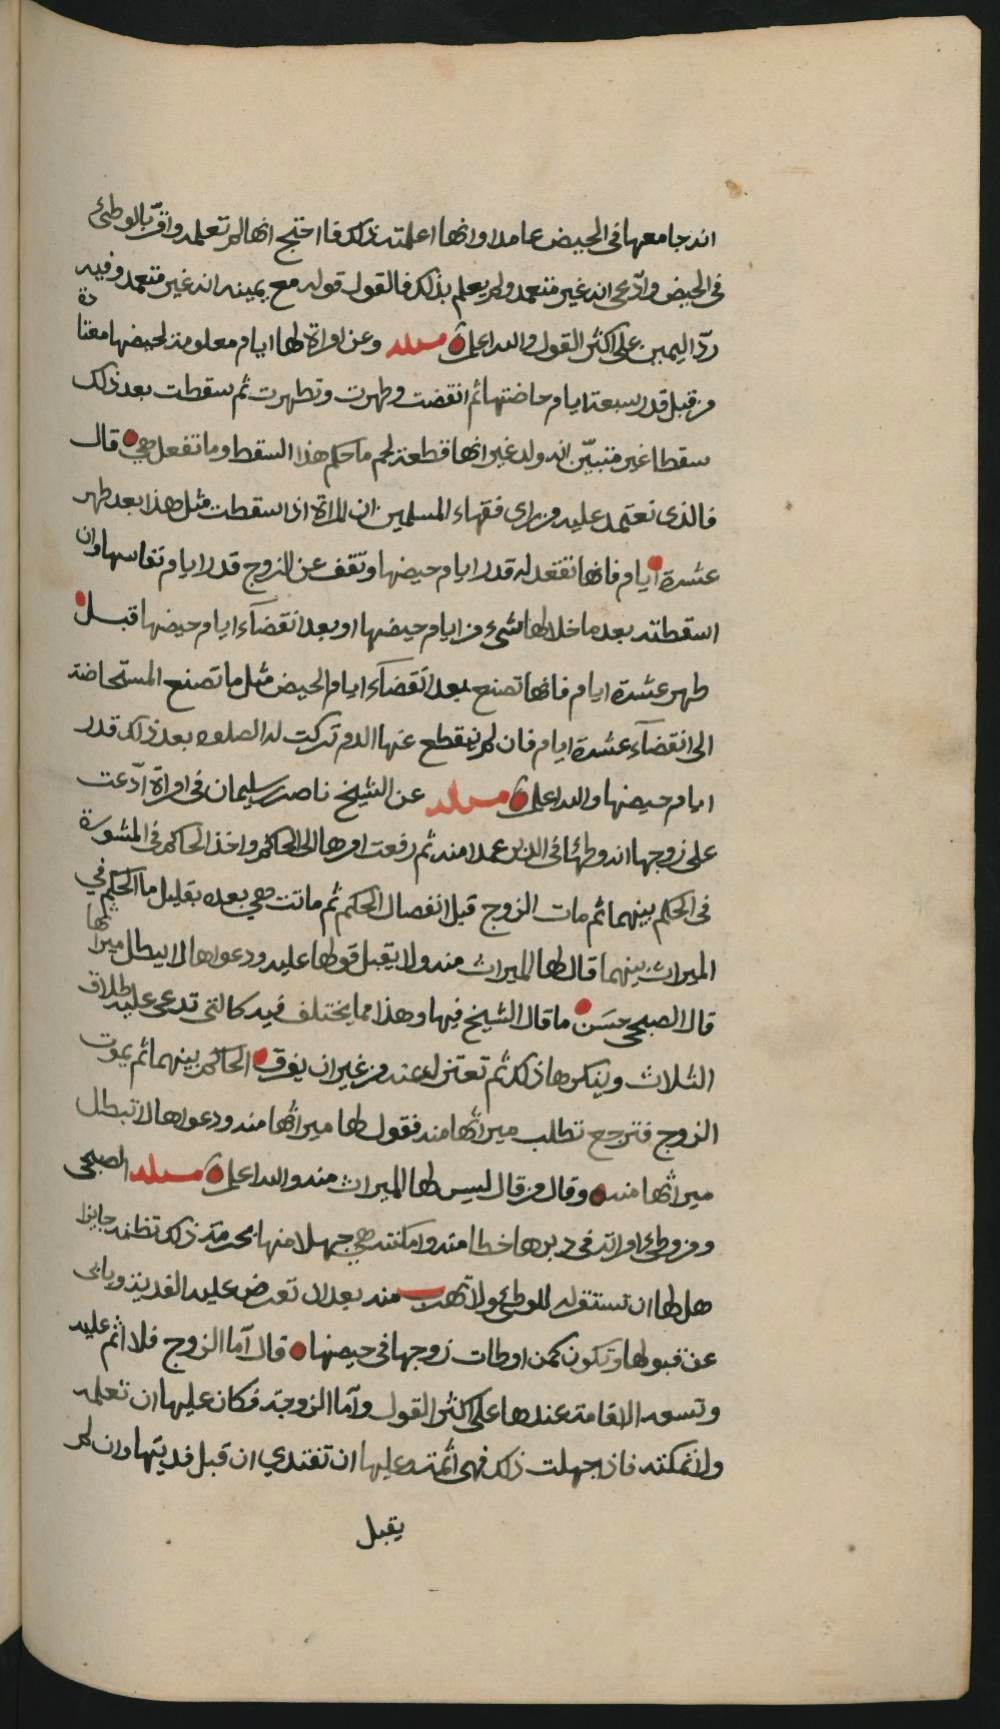 انه جامعها في الحيض عامدا وانها اعلمته ذلك فاحتج انها لم تعلمه واقرّ بالوطئ
في الحيض وادّعى انه غير متعمد ولم يعلم بذلك فالقول قوله مع يمينه انه غير متعمد وفيه
ردّ اليمين على اكثر القول والله اعلم مسئله وعن امراة لها ايام معلومة لحيضها معتادة
من قبل قدر سبعة ايام حاضتها ثم انقضت وطهرت وتطهرت ثم سقطت بعد ذلك
سقطا غير متبيّن انه ولد غير انها قطعة لحم ما حكم هذا السقط وما تفعل هي قال
فالذي نعتمد عليه من راي فقهاء المسلمين ان المراة اذا سقطت مثل هذا بعد طهر
عشرة ايام فانها تقعد له قدر ايام حيضها وتقف عن الزوج قدر ايام نفاسها وان
اسقطته بعد ما خلا لها شيء من ايام حيضها او بعد انقضآء ايام حيضها قبل
طهر عشرة ايام فانها تصنع بعد انقضآء ايام الحيض مثل ما تصنع المستحاضة
الى انقضآء عشرة ايام فان لم ينقطع عنها الدم تركت له الصلوه بعد ذلك قدر
ايام حيضها والله اعلم مسئله عن الشيخ ناصر بن سليمان في امراة ادّعت
على زوجها انه وطئها في الدبر عمدا منه ثم رفعت امرها الى الحاكم واخذ الحاكم في المشورة
في الحكم بينهما ثم مات الزوج قبل انفصال الحكم ثم ماتت هي بعده بقليل ما الحكم في
الميراث بينهما قال لها الميراث منه ولا يقبل قولها عليه ودعواها لا يبطل ميراثها
قال الصبحي حسَن ما قال الشيخ فيها وهذا مما يختلف فيه كالتي تدعي عليه طلاق
الثلاث وينكرها ذلك ثم تعتزله عنه من غير ان يفرق الحاكم بينهما ثم يموت
الزوج فترجع تطلب ميراثها منه فقول لها ميراثها منه ودعواها لا تبطل
ميراثها منه وقال من قال ليس لها الميراث منه والله اعلم مسئله الصبحي
ومن وطئ امراته في دبرها خطا منه وامكنته هي جهلا منها بحرمة ذلك تظنه جايزا
هل لها ان تستقر له للوطئ ولا تهرب منه بعد ان تعرض عليه الفدية ويابى
عن قبولها وتكون كمن اوطات زوجها في حيضها قال آما الزوج فلا اثم عليه
وتسعه الاقامة عندها على اكثر القول وآما الزوجة فكان عليها ان تعلمه
ولا تمكنه فاذ جهلت ذلك فهي آثمة وعليها ان تفتدي ان قبل فديتها وان لم
يقبل